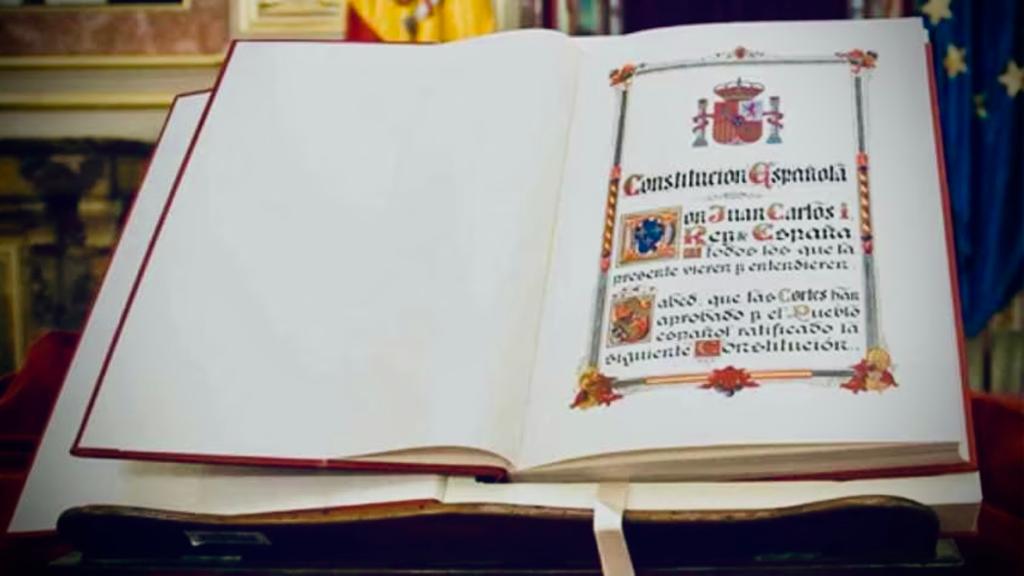 Constitución Española
Don Juan Carlos I,
Rey de España
a todos los que la
presente vieren y entendieren,
Sabed: que las Cortes han
aprobado y el Pueblo
español ratificado la
siguiente Constitución..